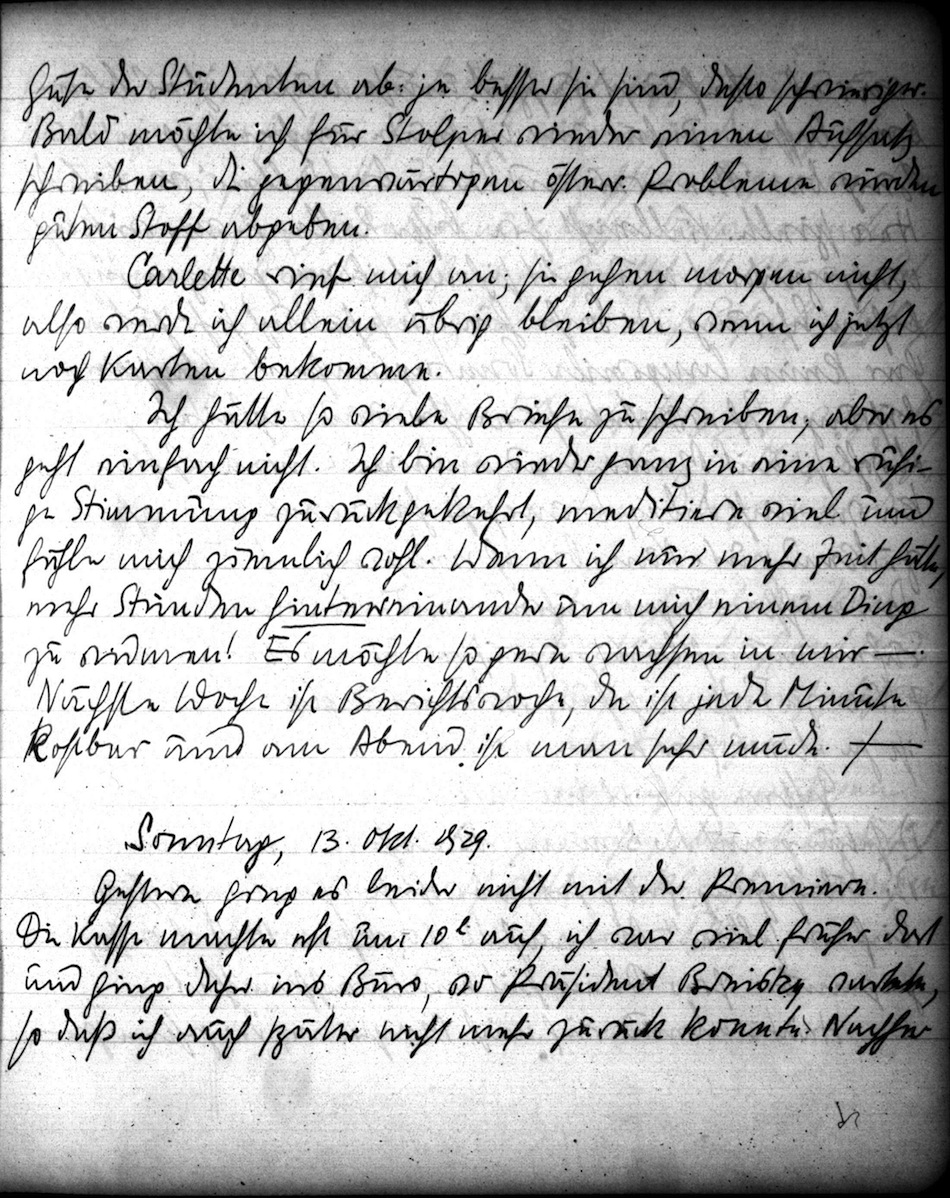 Güte der Studenten ab: je besser sie sind, desto schwieriger.
Bald möchte ich für Stolper wieder einen Aufsatz
schreiben, die gegenwärtigen österr. Probleme würden
guten Stoff abgeben.
Carlette rief mich an; sie gehen morgen nicht,
also werde ich allein übrig bleiben, wenn ich jetzt
noch Karten bekomme.
Ich hätte so viele Briefe zu schreiben, aber es
geht einfach nicht. Ich bin wieder ganz in eine ruhi-
ge Stimmung zurückgekehrt, meditiere viel und
fühle mich ziemlich wohl. Wenn ich nur mehr Zeit hätte,
mehr Stunden hintereinander um mich einem Ding
zu widmen! Es möchte so gern wachsen in mir —.
Nächste Woche ist Berichtswoche, da ist jede Minute
kostbar und am Abend ist man sehr müde. —
Sonntag, 13. Okt. 1929.
Gestern ging es leider nicht mit der Premiere.
Die Kasse machte erst um 10h auf, ich war viel früher dort
und ging daher ins Büro, wo Präsident Breisky wartete,
so daß ich auch später nicht mehr zurück konnte. Nachher